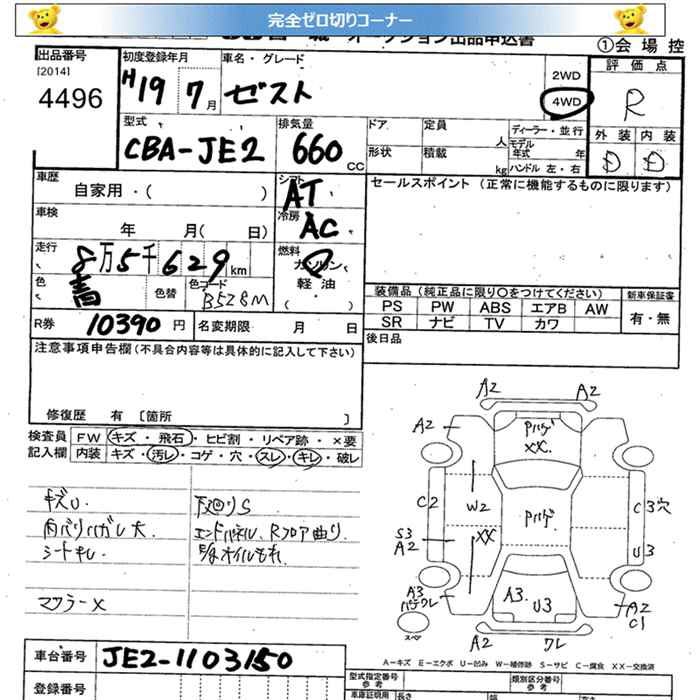 完全ゼロ切りコーナー
オークション出品申込書
①会場控
出品番号
[2014]
4496
初度登録年月
H19 7月
車名・グレード
ゼスト
2WD
4WD
評価点
R
外装 内装
D D
型式
CBA-JE2
排気量
660 CC
ドア
定員
人
形状
積載
kg
ディーラー・並行
モデル年式 年
ハンドル 左・右
車歴
自家用・( )
シフト
AT
セールスポイント (正常に機能するものに限ります)
車検
年 月( 日)
冷房
AC
走行
8万5千629km
燃料
ガソリン
軽油
( )
色
青
色替
色コード
B528M
装備品 (純正品に限り〇をつけてください)
新車保証書
PS PW ABS エアB AW
有・無
SR ナビ TV カワ
R券 10390円
名変期限 月 日
後日品
注意事項申告欄 (不具合内容等は具体的に記入して下さい)
修復歴 有 [箇所 ]
検査員記入欄
FW キズ・飛石・ヒビ割・リペア跡・×要
内装 キズ・汚レ・コゲ・穴・スレ・キレ・破レ
キズU.
内バリハガレ大
シートキレ
マフラーX
下廻りS
エンドパネル、Rフロア曲り
E/gオイルもれ
A2 A2
A2
Pハゲ
XX.
C2
W2
Pハゲ
C3穴
S3
A2
XX
U3
A3
パテワレ
A3.
U3
A2
C1
スペア
A2 ワレ
A-キズ E-エクボ U-凹み W-補修跡 S-サビ C-腐食 XX-交換済
車台番号 JE2-1103150
登録番号
型式指定番号
参考
類別区分番号
参考
車庫証明用
長さ
幅
高さ